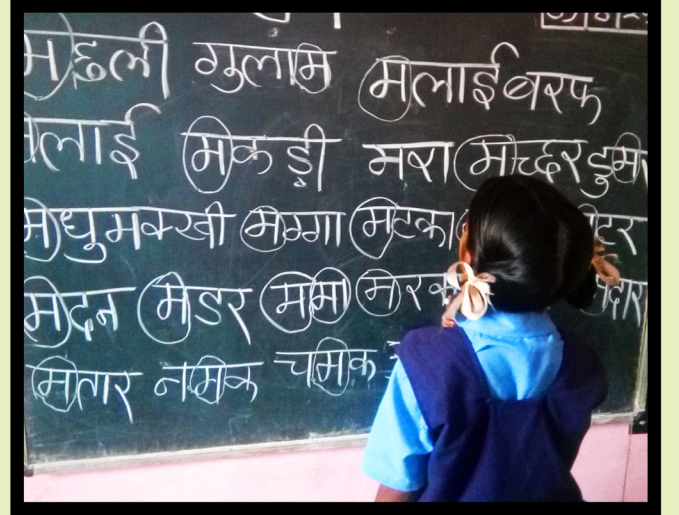 मछली गुलाम मलाईबरफ
मलाई मकड़ी मषा मच्छर डुम
मधुमक्खी मग्गा मटका मीटर
मदन मडर मामा मरक दार
मितार नमक चमक